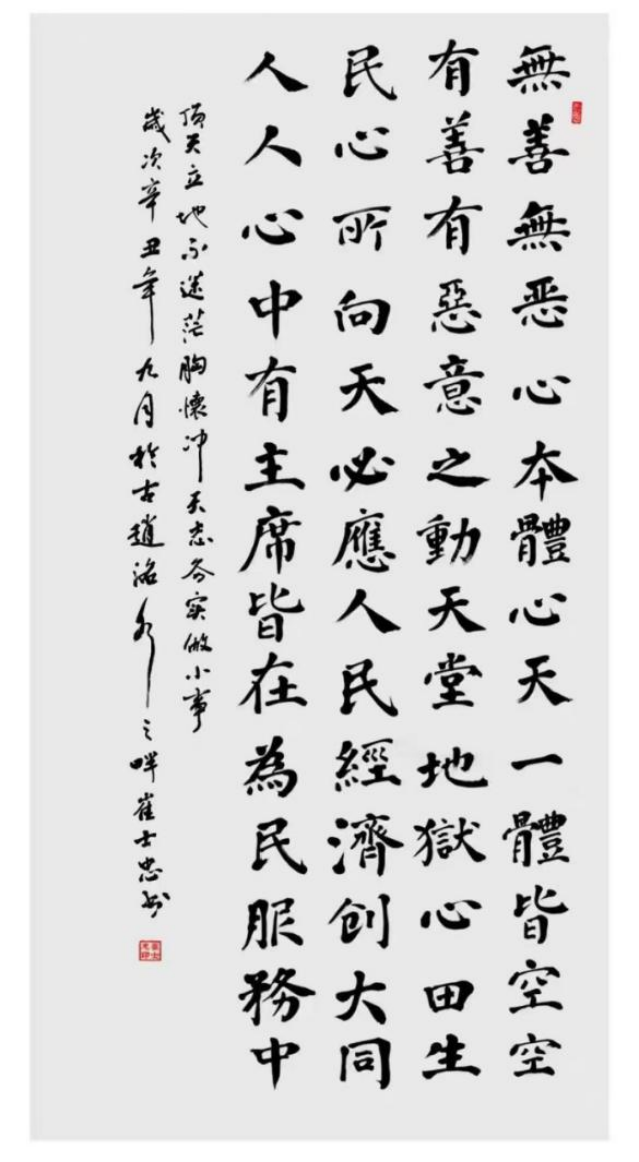 無善無恶心本體心天一體皆空空
有善有惡意之動天堂地獄心田生
民心所向天必應人民經濟創大同
人人心中有主席皆在為民服務中
顶天立地不迷茫胸懷冲天志务实做小事
歲次辛丑年九月於古趙洺水之畔崔士忠书